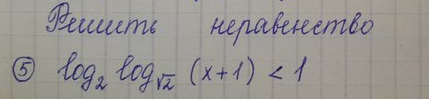 Решить неравенство
⑤ log₂ log_√2 (x+1) < 1